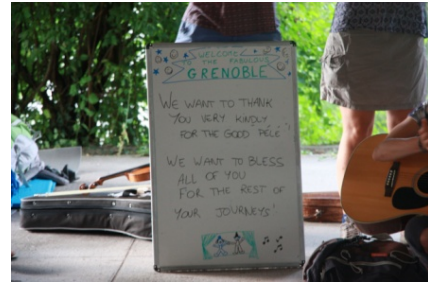 WELCOME
TO THE FABULOUS
GRENOBLE
WE WANT TO THANK
YOU VERY KINDLY
FOR THE GOOD PÉLÉ
WE WANT TO BLESS
ALL OF YOU
FOR THE REST OF
YOUR JOURNEYS!